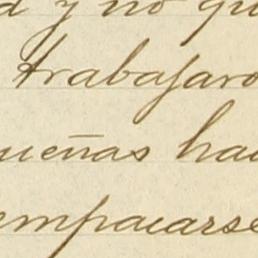 d y no qu
trabajaro
ueñas hac
empacarse